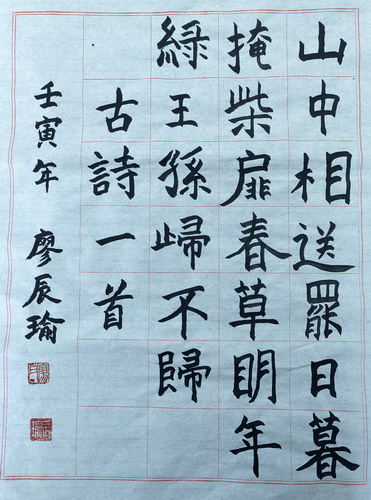 山中相送罷日暮
掩柴扉春草明年
綠王孫歸不歸
古詩一首
壬寅年 廖辰瑜